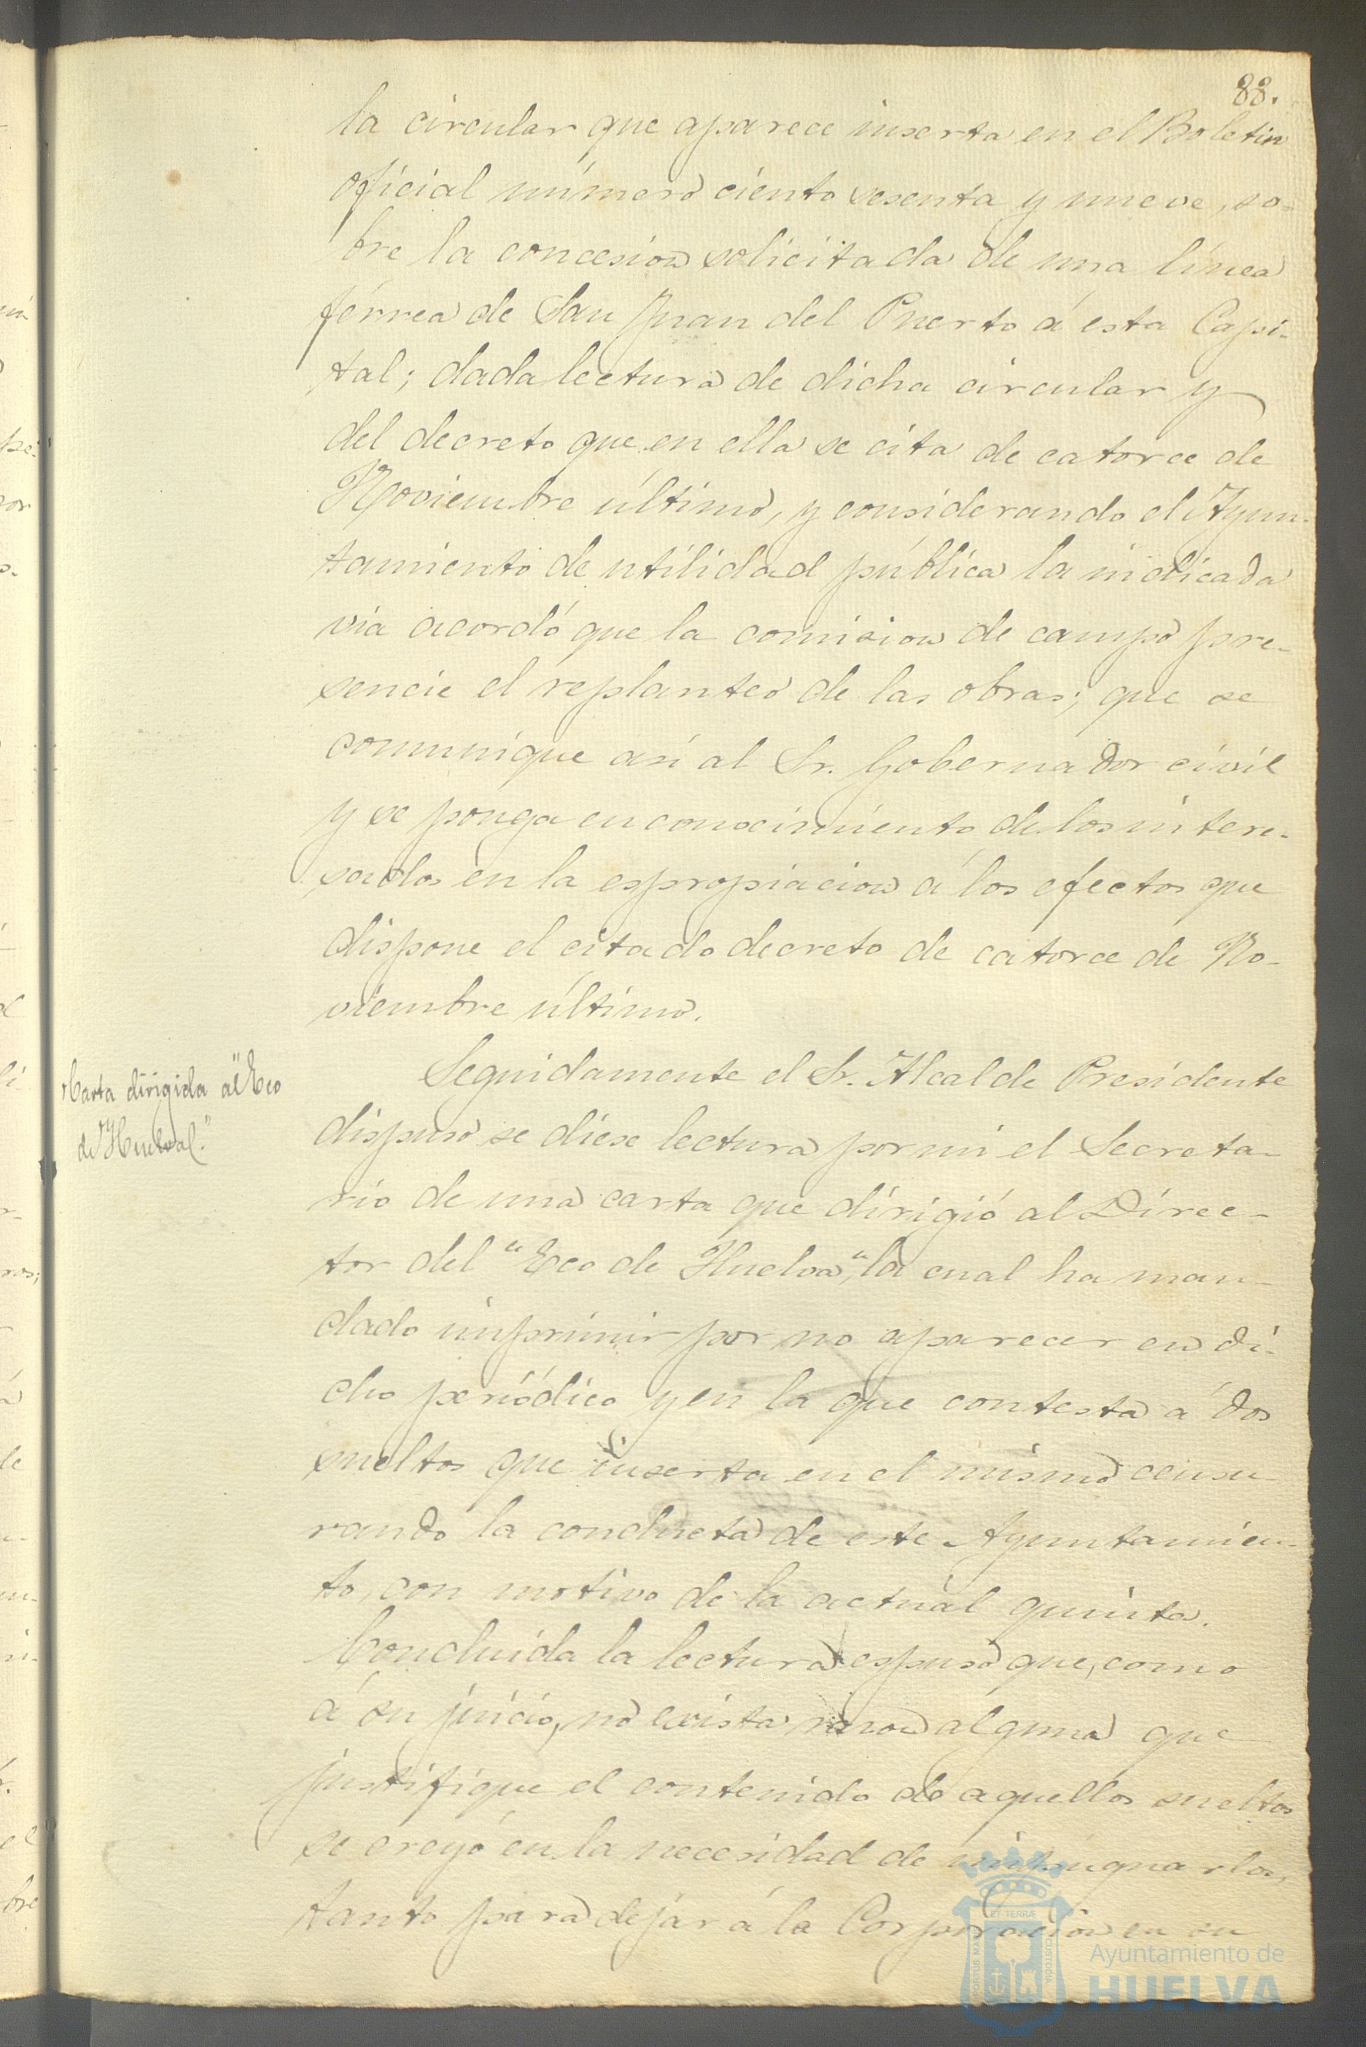 88.
la circular que aparece inserta en el Boletin
oficial número ciento sesenta y nueve, so-
bre la concesion solicitada de una línea
férrea de San Juan del Puerto á esta Capi-
tal; dada lectura de dicha circular y
del decreto que en ella se cita de catorce de
Noviembre último, y considerando el Ayun-
tamiento de utilidad pública la indicada
via acordó que la comision de campo pre-
sencie el replanteo de las obras; que se
comunique así al Sr. Gobernador civil
y se ponga en conocimiento de los intere-
sados en la espropiacion á los efectos que
dispone el citado decreto de catorce de No-
viembre último.
Carta dirigida al "Eco
de Huelva."
Seguidamente el Sr. Alcalde Presidente
dispuso se diese lectura por mi el Secreta-
rio de una carta que dirigió al Direc-
tor del "Eco de Huelva", la cual ha man-
dado imprimir por no aparecer en di-
cho periódico y en la que contesta á dos
sueltos que inserta en el mismo censu-
rando la conducta de este Ayuntamien-
to, con motivo de la actual quinta.
Concluida la lectura espuso que, como
á su juicio, no exista razon alguna que
justifique el contenido de aquellos sueltos
se creyó en la necesidad de impugnarlos,
tanto para dejar á la Corporacion en su
PORTUS MARIS
ET TERRÆ
CUSTODIA
Ayuntamiento de
HUELVA